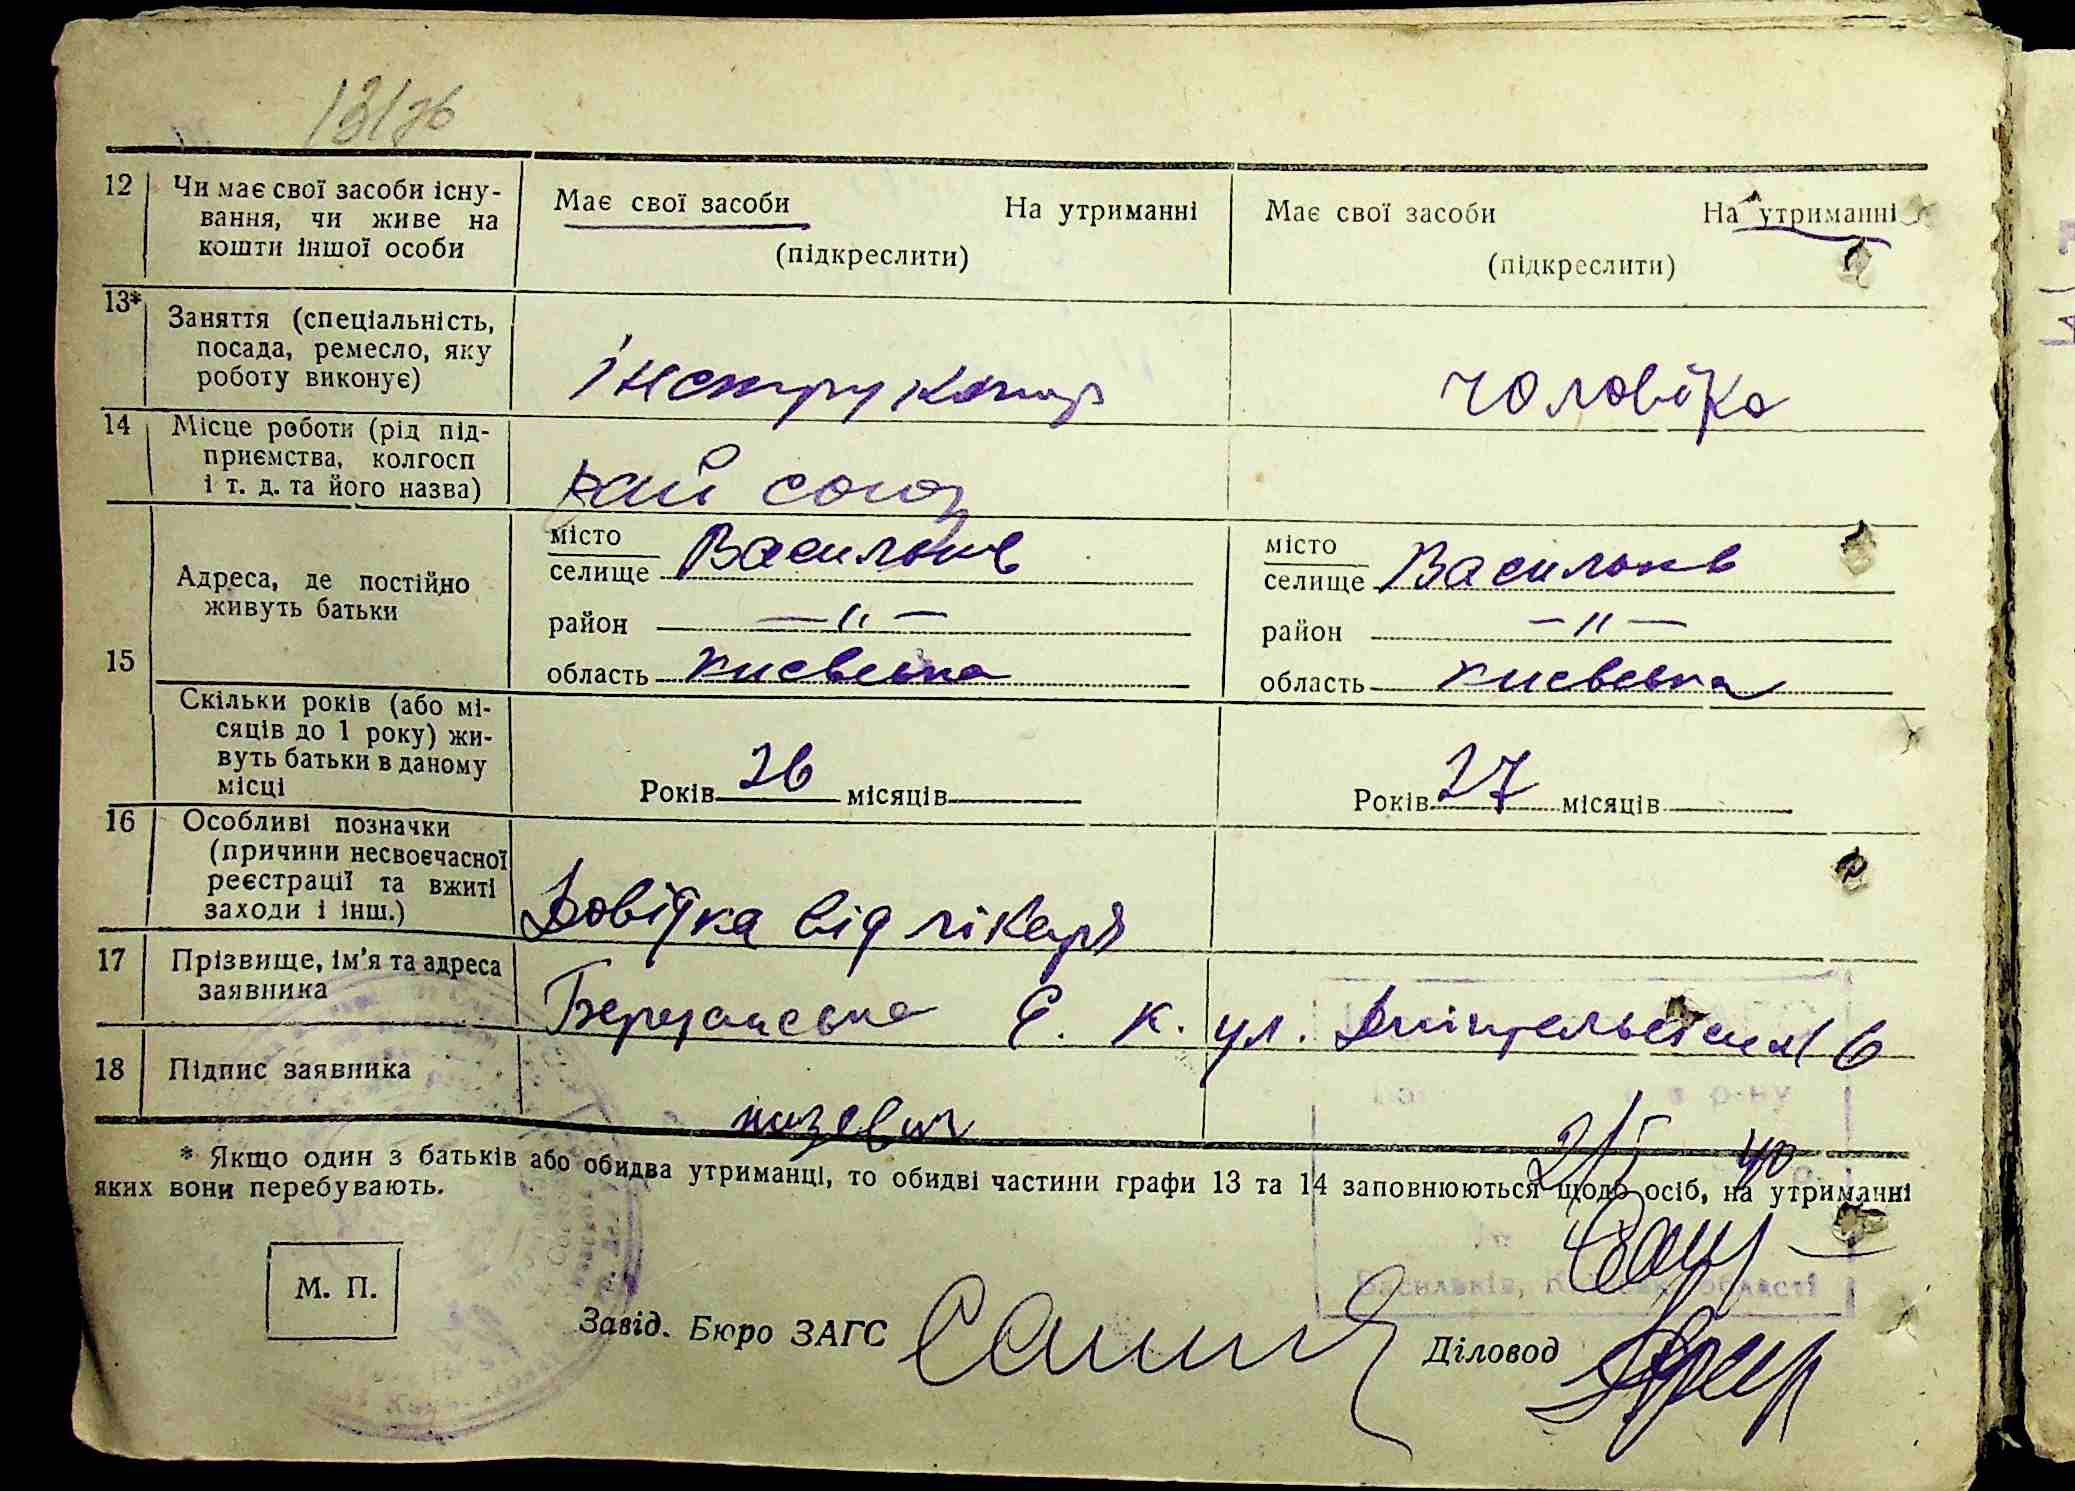 12 Чи має свої засоби існу-
вання, чи живе на
кошти іншої особи
Має свої засоби На утриманні
(підкреслити)
Має свої засоби На утриманні
(підкреслити)
13* Заняття (спеціальність,
посада, ремесло, яку
роботу виконує)
інструктор
чоловіка
14 Місце роботи (рід під-
приємства, колгосп
і т. д. та його назва)
рай союз
15 Адреса, де постійно
живуть батьки
місто
селище Васильків
район —〃—
область Киевська
місто
селище Васильків
район —〃—
область Киевська
Скільки років (або мі-
сяців до 1 року) жи-
вуть батьки в даному
місці
Років 26 місяців
Років 27 місяців
16 Особливі позначки
(причини несвоєчасної
реєстрації та вжиті
заходи і інш.)
Довідка від лікаря
17 Прізвище, ім’я та адреса
заявника
Березанська Є. К. ул. 6
18 Підпис заявника
2/I 40
* Якщо один з батьків або обидва утриманці, то обидві частини графи 13 та 14 заповнюються щодо осіб, на утриманні
яких вони перебувають.
М. П.
Завід. Бюро ЗАГС
Діловод
Васильків, області